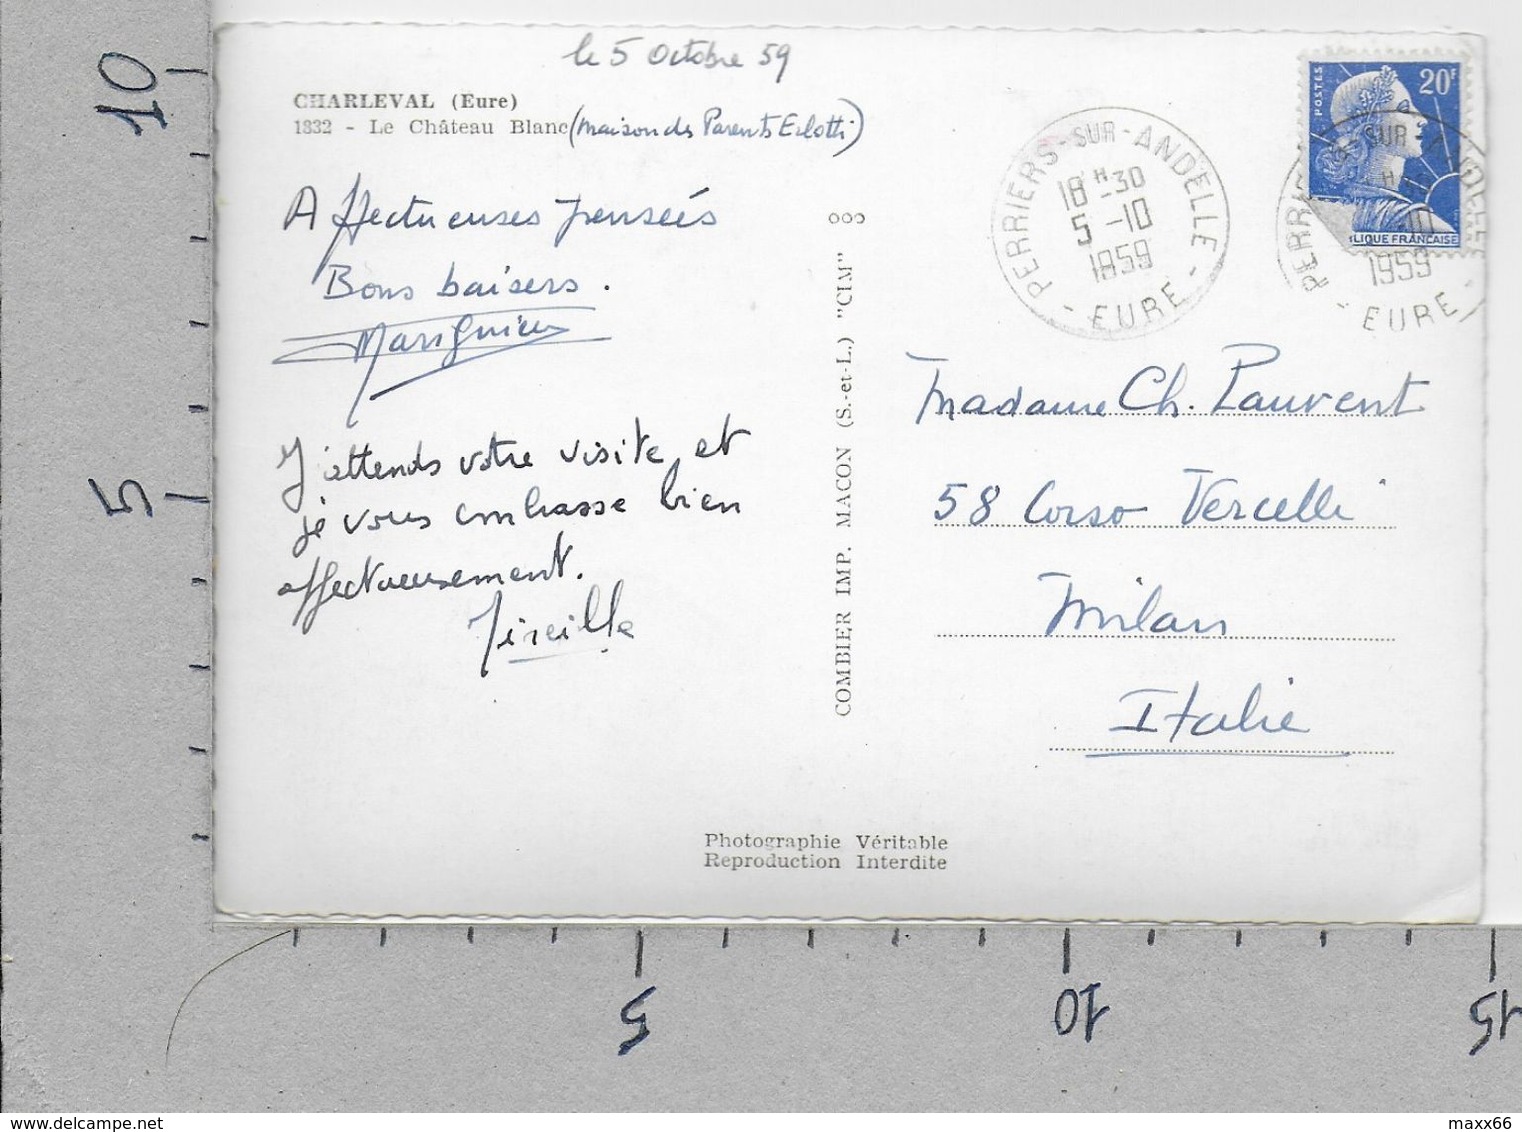 le 5 Octobre 59
CHARLEVAL (Eure)
1332 - Le Château Blanc (maison des Parents)
Affectueuses pensées
Bons baisers.
J'attends votre visite, et
je vous embrasse bien
affectueusement.
Mireille
COMBIER IMP. MACON (S.-et-L.) "CIM"
PERRIERS-SUR-ANDELLE
18H-30
5-10
1959
- EURE -
POSTES
20F
1959
- EURE -
Madame Ch. Laurent
58 Corso Vercelli
Milan
Italie
Photographie Véritable
Reproduction Interdite
10
5
5
10
15
maxx66